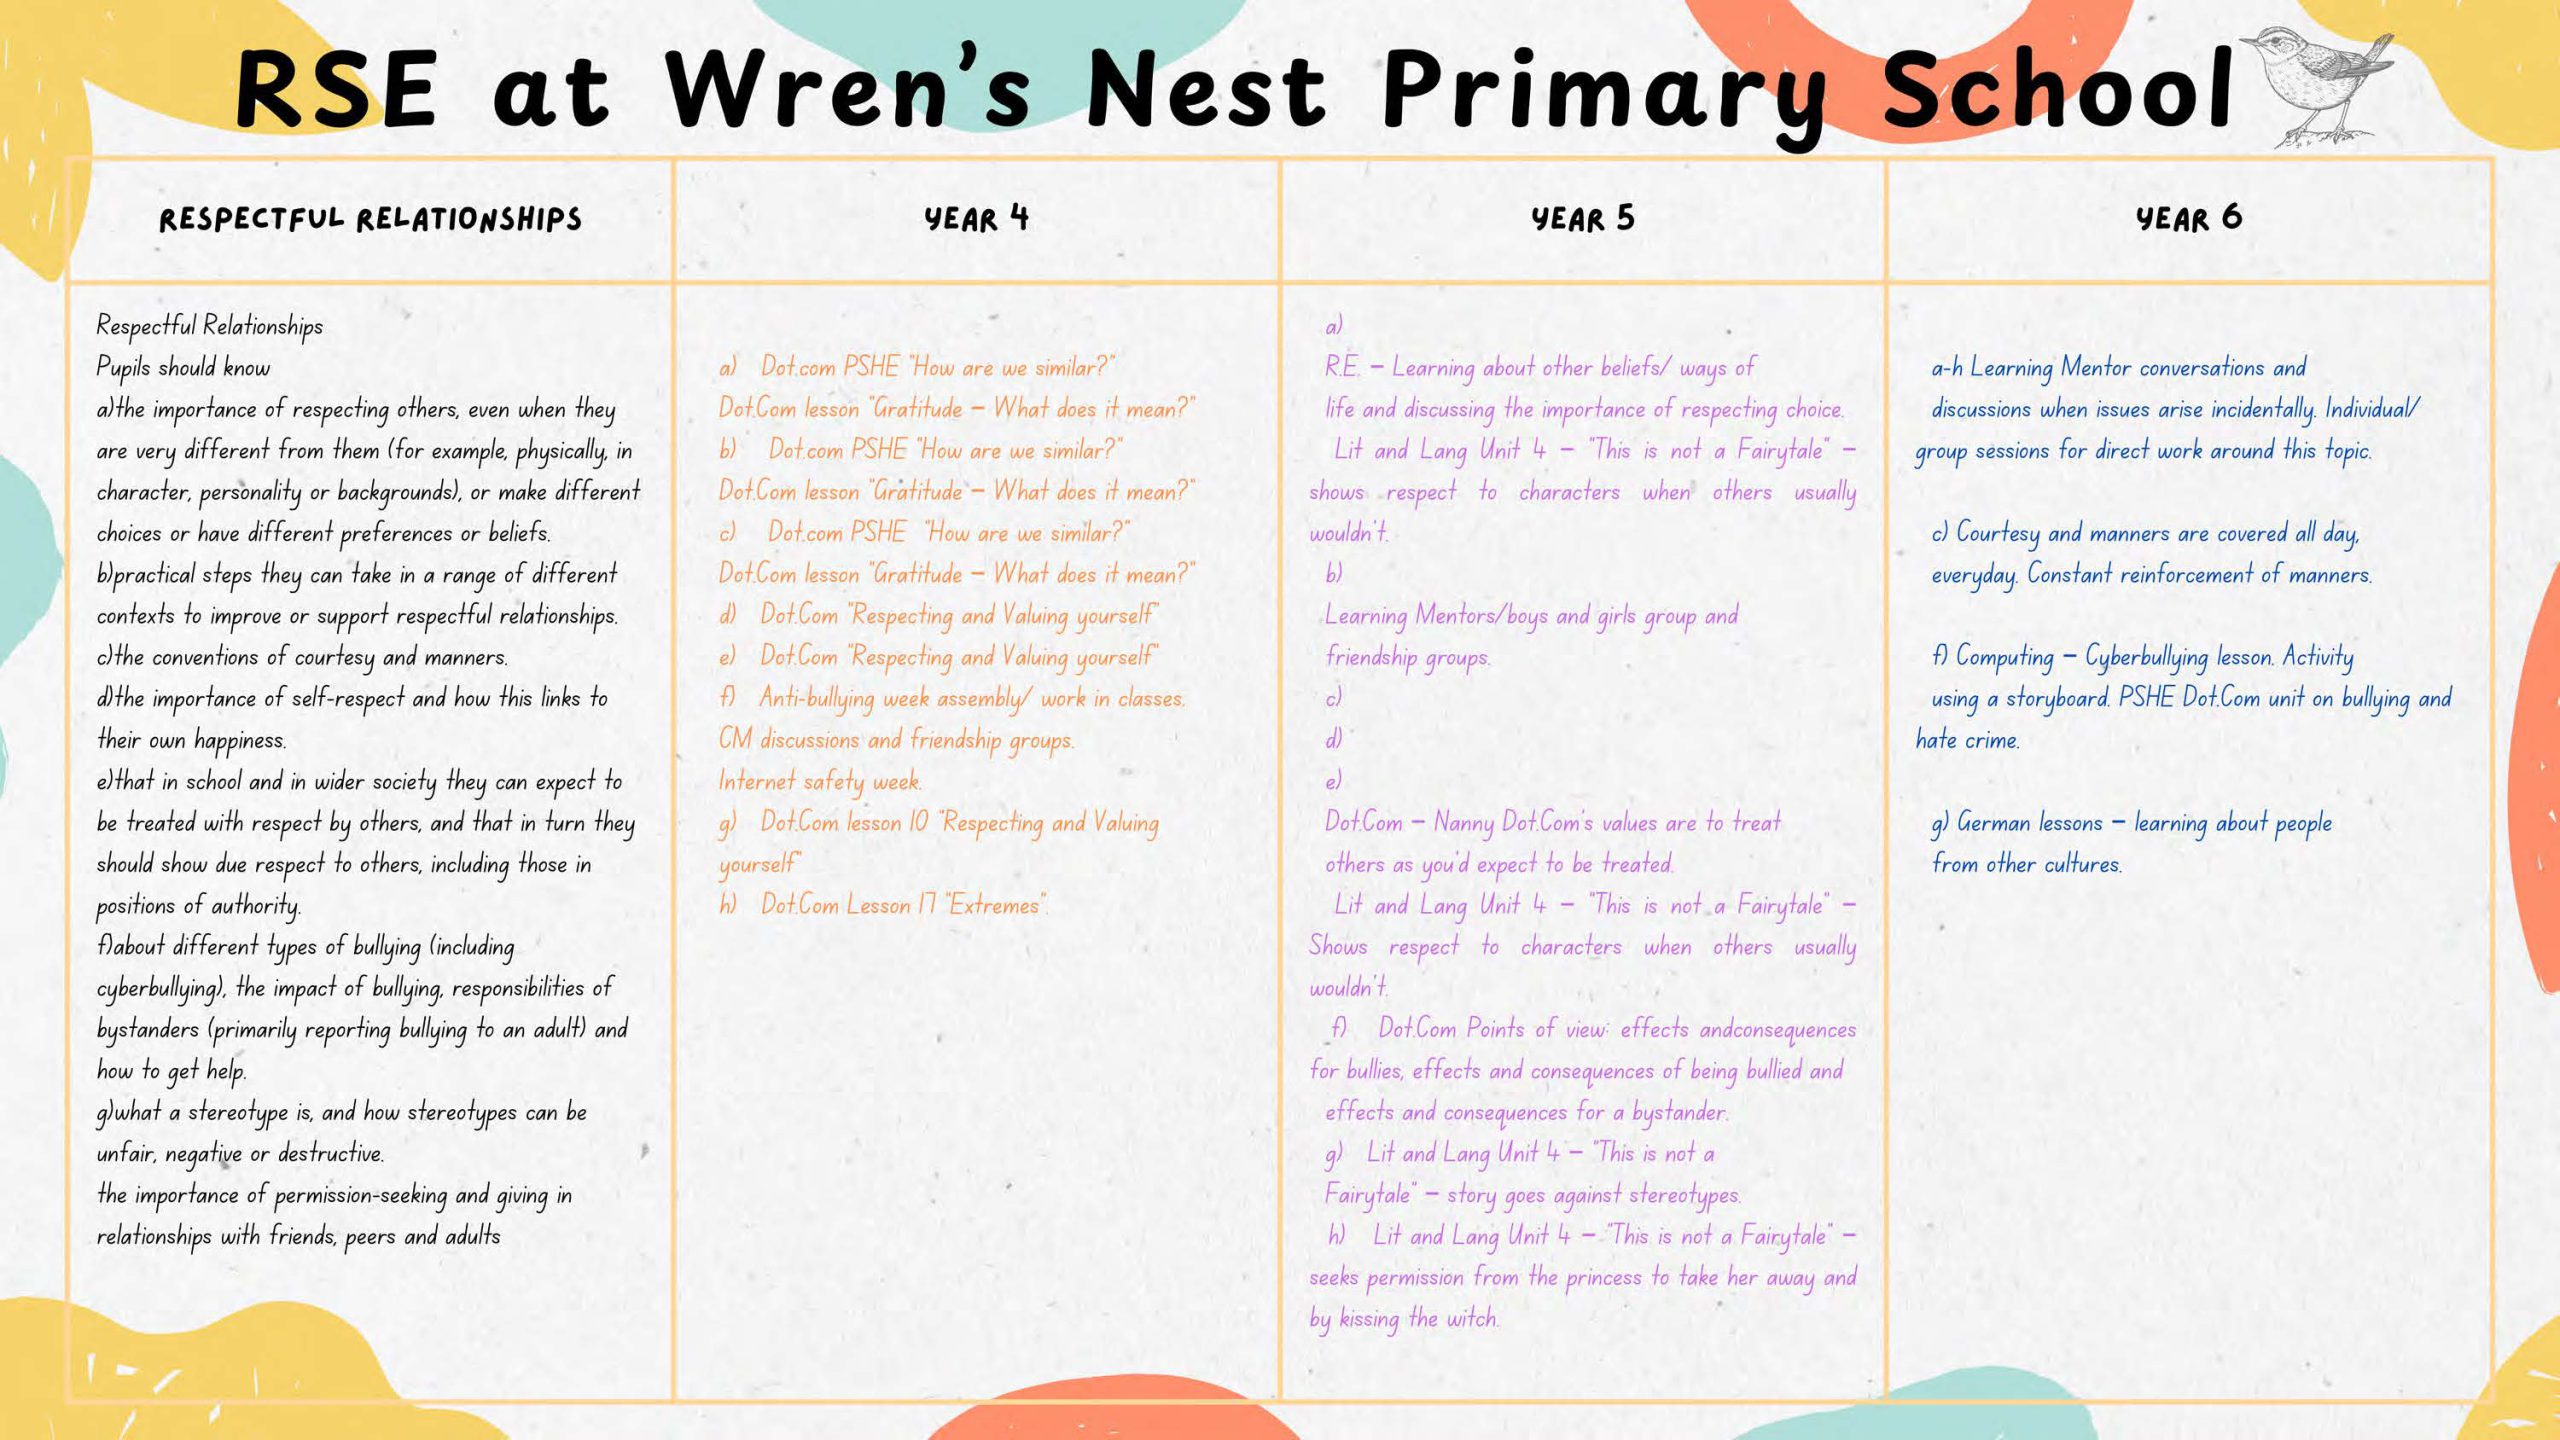 RSE at Wren's Nest Primary School
RESPECTFUL RELATIONSHIPS
Respectful Relationships
Pupils should know
a)the importance of respecting others, even when they
are very different from them (for example, physically, in
character, personality or backgrounds), or make different
choices or have different preferences or beliefs.
b)practical steps they can take in a range of different
contexts to improve or support respectful relationships.
c)the conventions of courtesy and manners.
d)the importance of self-respect and how this links to
their own happiness.
e)that in school and in wider society they can expect to
be treated with respect by others, and that in turn they
should show due respect to others, including those in
positions of authority.
f)about different types of bullying (including
cyberbullying), the impact of bullying, responsibilities of
bystanders (primarily reporting bullying to an adult) and
how to get help.
g)what a stereotype is, and how stereotypes can be
unfair, negative or destructive.
the importance of permission-seeking and giving in
relationships with friends, peers and adults
YEAR 4
a) Dot.com PSHE "How are we similar?"
Dot.Com lesson "Gratitude – What does it mean?"
b) Dot.com PSHE "How are we similar?"
Dot.Com lesson "Gratitude – What does it mean?"
c) Dot.com PSHE "How are we similar?"
Dot.Com lesson "Gratitude – What does it mean?"
d) Dot.Com "Respecting and Valuing yourself"
e) Dot.Com "Respecting and Valuing yourself"
f) Anti-bullying week assembly/ work in classes.
CM discussions and friendship groups.
Internet safety week.
g) Dot.Com lesson 10 "Respecting and Valuing
yourself"
h) Dot.Com Lesson 17 "Extremes".
YEAR 5
a)
R.E. – Learning about other beliefs/ ways of
life and discussing the importance of respecting choice.
Lit and Lang Unit 4 – "This is not a Fairytale" –
shows respect to characters when others usually
wouldn't.
b)
Learning Mentors/boys and girls group and
friendship groups.
c)
d)
e)
Dot.Com – Nanny Dot.Com's values are to treat
others as you'd expect to be treated.
Lit and Lang Unit 4 – "This is not a Fairytale" –
Shows respect to characters when others usually
wouldn't.
f) Dot.Com Points of view: effects andconsequences
for bullies, effects and consequences of being bullied and
effects and consequences for a bystander.
g) Lit and Lang Unit 4 – "This is not a
Fairytale" – story goes against stereotypes.
h) Lit and Lang Unit 4 – "This is not a Fairytale" –
seeks permission from the princess to take her away and
by kissing the witch.
YEAR 6
a-h Learning Mentor conversations and
discussions when issues arise incidentally. Individual/
group sessions for direct work around this topic.
c) Courtesy and manners are covered all day,
everyday. Constant reinforcement of manners.
f) Computing – Cyberbullying lesson. Activity
using a storyboard. PSHE Dot.Com unit on bullying and
hate crime.
g) German lessons – learning about people
from other cultures.